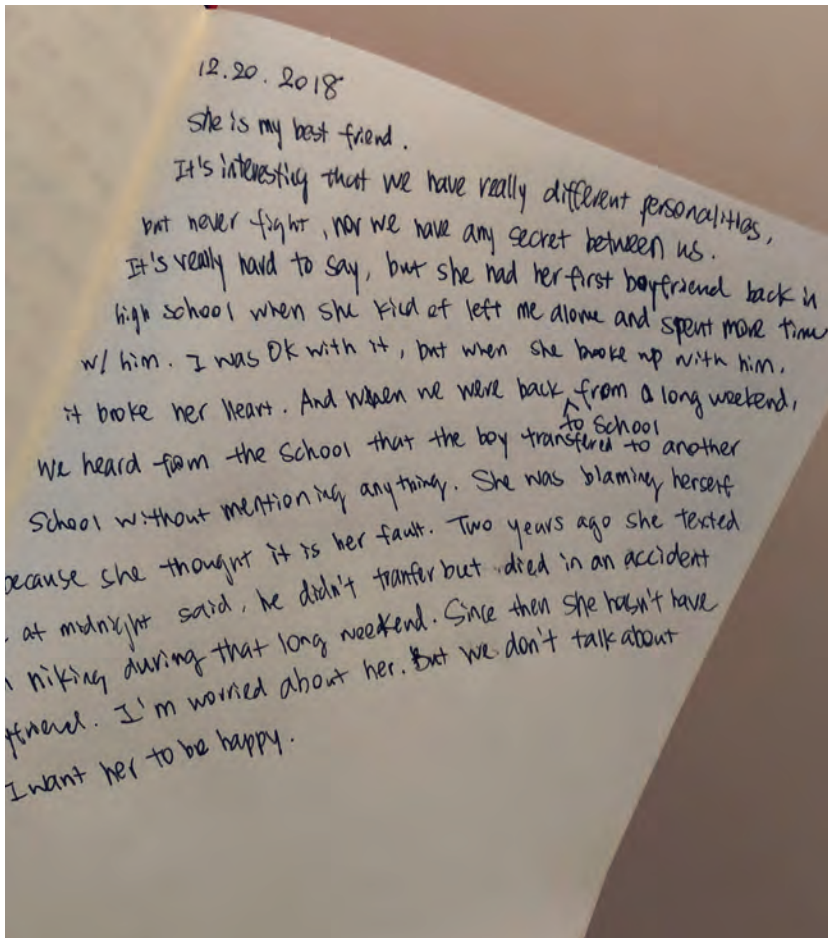 12.20.2018
She is my best friend.
It's interesting that we have really different personalities,
but never fight, nor we have any secret between us.
It's really hard to say, but she had her first boyfriend back in
high school when she kid of left me alone and spent more time
w/ him. I was OK with it, but when she broke up with him,
it broke her heart. And when we were back from a long weekend,
to school
we heard from the school that the boy transfered to another
school without mentioning anything. She was blaming herself
because she thought it is her fault. Two years ago she texted
at midnight said, he didn't tranfer but died in an accident
hiking during that long weekend. Since then she hasn't have
I'm worried about her. But we don't talk about
I want her to be happy.